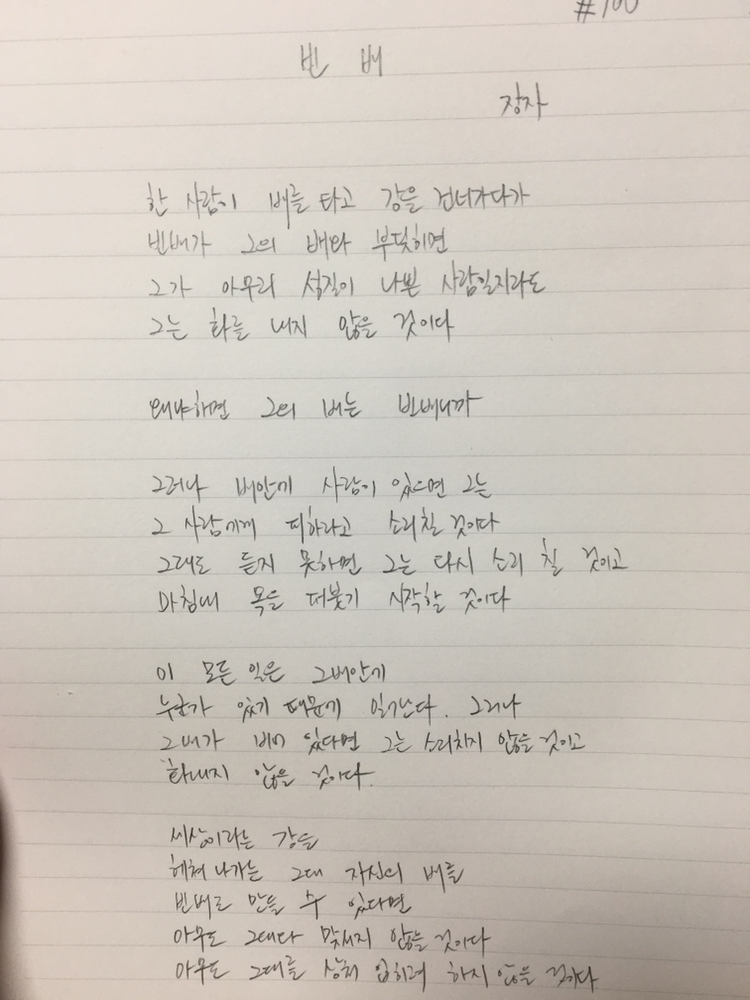 #100
빈 배
장자
한 사람이 배를 타고 강을 건너가다가
빈배가 그의 배와 부딪히면
그가 아무리 성질이 나쁜 사람일지라도
그는 화를 내지 않을 것이다
왜냐하면 그의 배는 빈배니까
그러나 배안에 사람이 있으면 그는
그 사람에게 피하라고 소리칠 것이다
그래도 듣지 못하면 그는 다시 소리 칠 것이고
마침내 욕을 퍼붓기 시작할 것이다
이 모든 일은 그배안에
누군가 있기 때문에 일어난다. 그러나
그배가 비어 있다면 그는 소리치지 않을 것이고
화내지 않을 것이다.
세상이라는 강을
헤쳐 나가는 그대 자신의 배를
빈배로 만들 수 있다면
아무도 그대와 맞서지 않을 것이다
아무도 그대를 상처 입히려 하지 않을 것이다